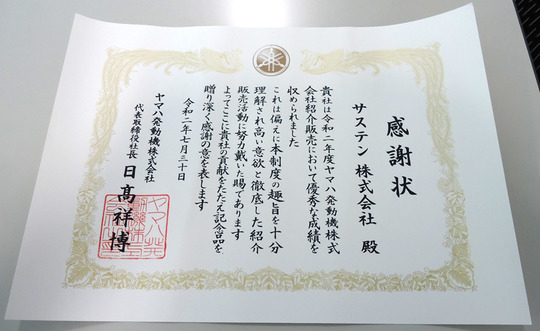 感謝状
サステン 株式会社 殿
貴社は令和二年度ヤマハ発動機株式
会社紹介販売において優秀な成績を
収められました
これは偏えに本制度の趣旨を十分
理解され高い意欲と徹底した紹介
販売活動に努力戴いた賜であります
よってここに貴社の貢献をたたえ記念品を
贈り深く感謝の意を表します
令和二年七月三十日
ヤマハ発動機株式会社
代表取締役社長 日髙祥博